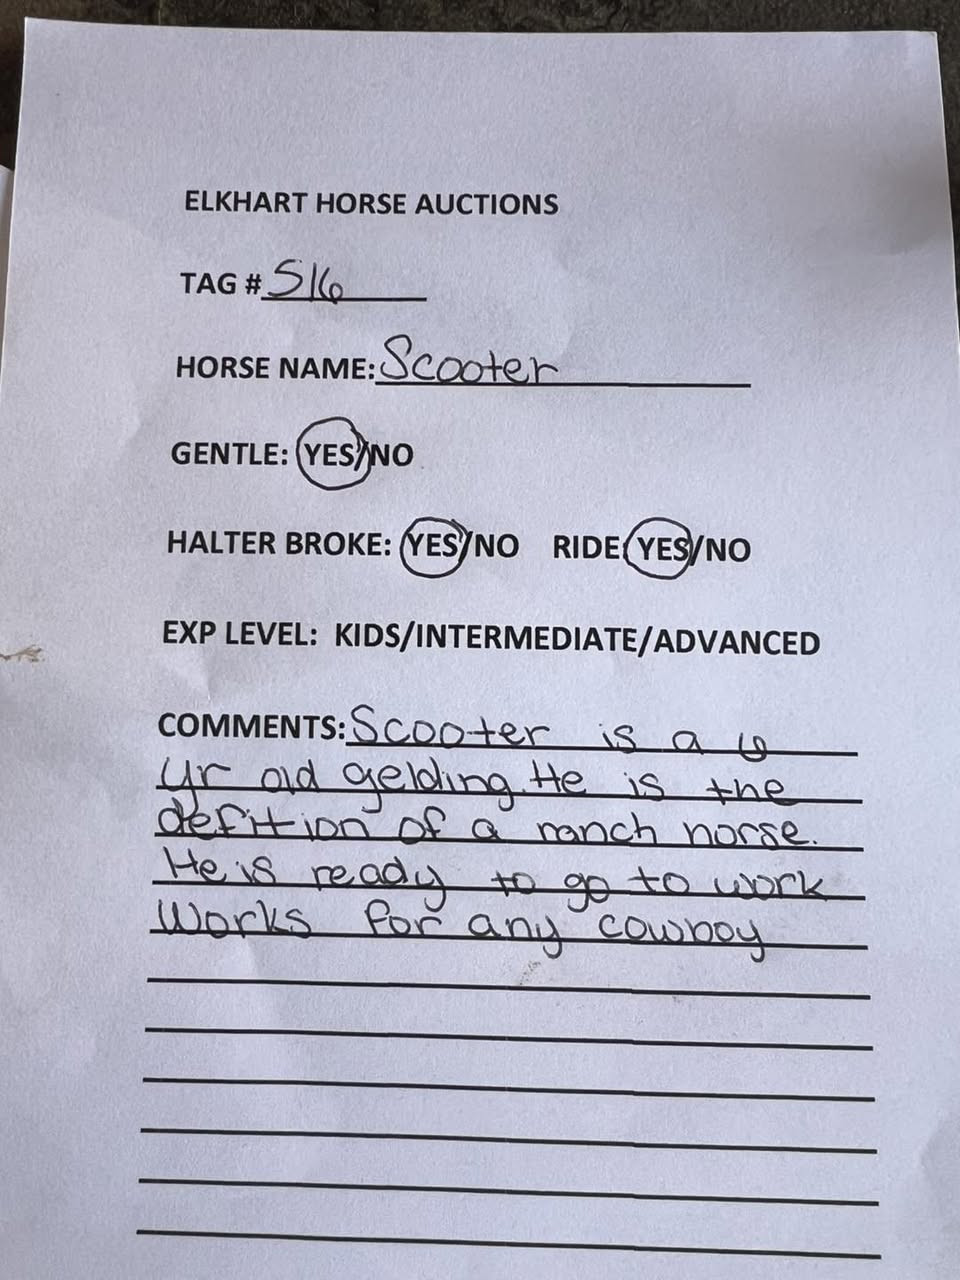 ELKHART HORSE AUCTIONS
TAG # 516
HORSE NAME: Scooter
GENTLE: YES/NO
HALTER BROKE: YES/NO RIDE YES/NO
EXP LEVEL: KIDS/INTERMEDIATE/ADVANCED
COMMENTS: Scooter is a 6
yr old gelding. He is the
defition of a ranch horse.
He is ready to go to work
Works for any cowboy